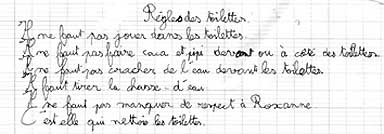 Règles des toilettes.
Il ne faut pas jouer dans les toilettes.
Il ne faut pas faire caca et pipi devant ou à côté des toilettes
Il ne faut pas cracher de l'eau devant les toilettes.
Il faut tirer la chasse d'eau.
Il ne faut pas manquer de respect à Roxanne
C'est elle qui nettoie les toilettes.